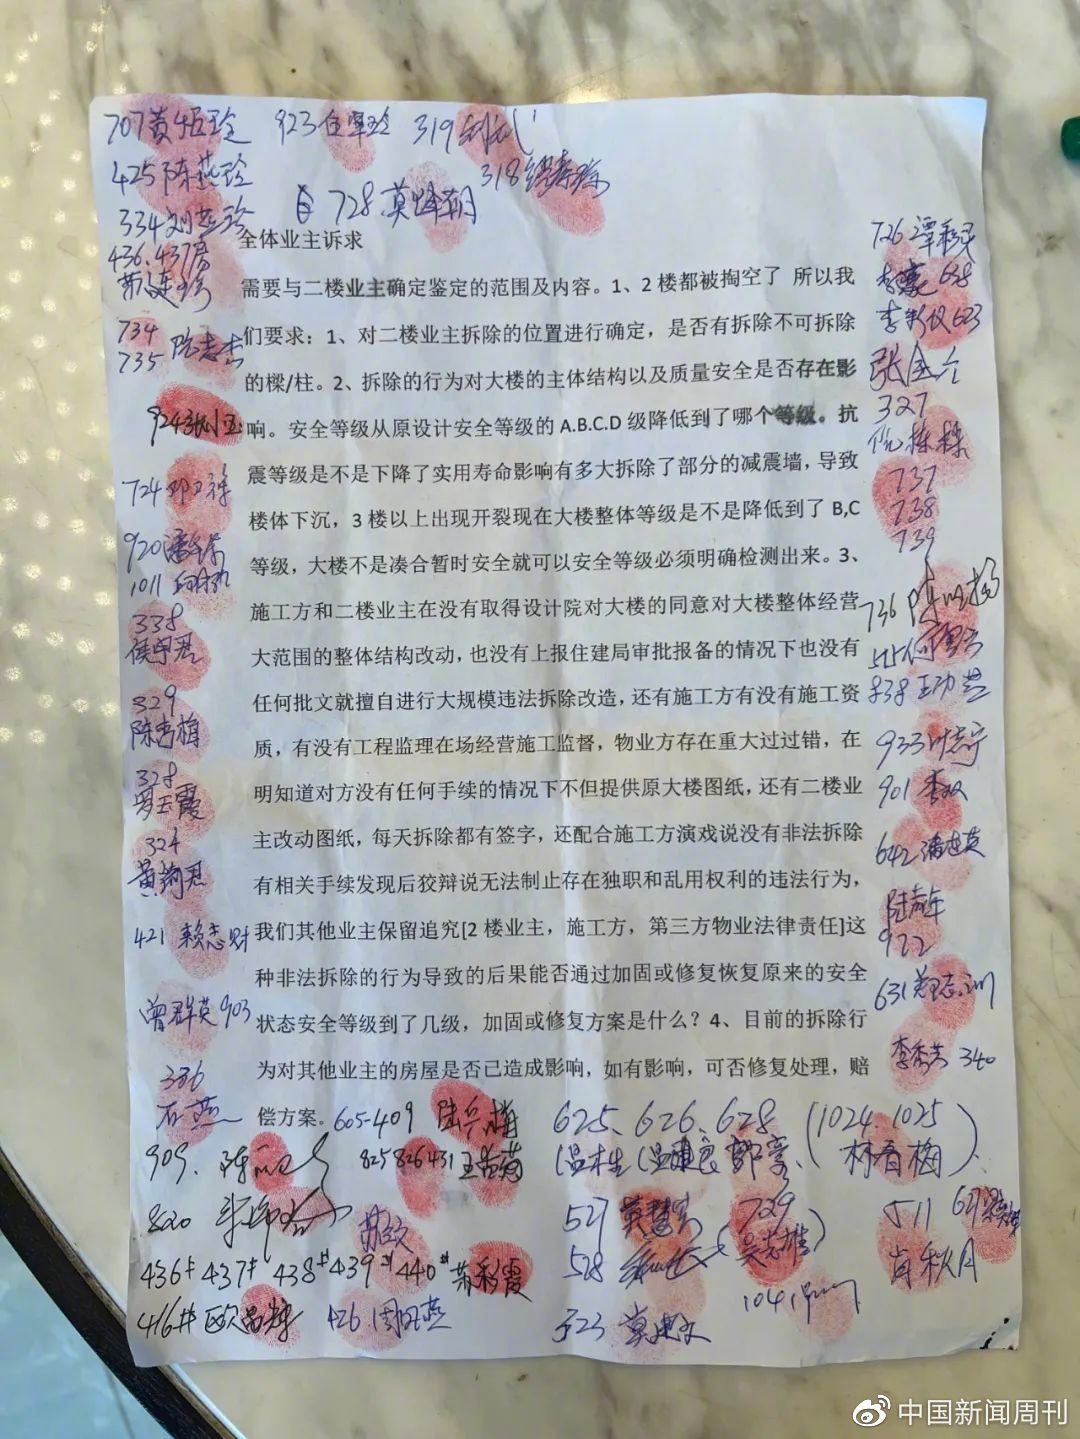 707
923
319
425 陈燕玲
318
728
334
436.437房
全体业主诉求
需要与二楼业主确定鉴定的范围及内容。1、2 楼都被掏空了 所以我
们要求：1、对二楼业主拆除的位置进行确定，是否有拆除不可拆除
的樑/柱。2、拆除的行为对大楼的主体结构以及质量安全是否存在影
响。安全等级从原设计安全等级的 A.B.C.D 级降低到了哪个等级。抗
震等级是不是下降了实用寿命影响有多大拆除了部分的减震墙，导致
楼体下沉，3 楼以上出现开裂现在大楼整体等级是不是降低到了 B,C
等级，大楼不是凑合暂时安全就可以安全等级必须明确检测出来。3、
施工方和二楼业主在没有取得设计院对大楼的同意对大楼整体经营
大范围的整体结构改动，也没有上报住建局审批报备的情况下也没有
任何批文就擅自进行大规模违法拆除改造，还有施工方有没有施工资
质，有没有工程监理在场经营施工监督，物业方存在重大过过错，在
明知道对方没有任何手续的情况下不但提供原大楼图纸，还有二楼业
主改动图纸，每天拆除都有签字，还配合施工方演戏说没有非法拆除
有相关手续发现后狡辩说无法制止存在独职和乱用权利的违法行为，
我们其他业主保留追究[2 楼业主，施工方，第三方物业法律责任]这
种非法拆除的行为导致的后果能否通过加固或修复恢复原来的安全
状态安全等级到了几级，加固或修复方案是什么？4、目前的拆除行
为对其他业主的房屋是否己造成影响，如有影响，可否修复处理，赔
偿方案。
734
735 陈志杰
924
724
920
1011
338
329
陈春梅
328
罗玉霞
324
421 赖志财
曾群英 903
336
石燕
726
638
623
327
737
738
739
736
515
838
933
901 李双
642
922
631
李秀芳 340
605-409
625、626、628
(1024.1025
林春梅)
909
825 826 431
820
苏文
527
729
吴志雄
511
肖秋月
528
436# 437# 438# 439# 440# 苏彩霞
1041
416# 欧昌辉
426 周旺燕
523
中国新闻周刊